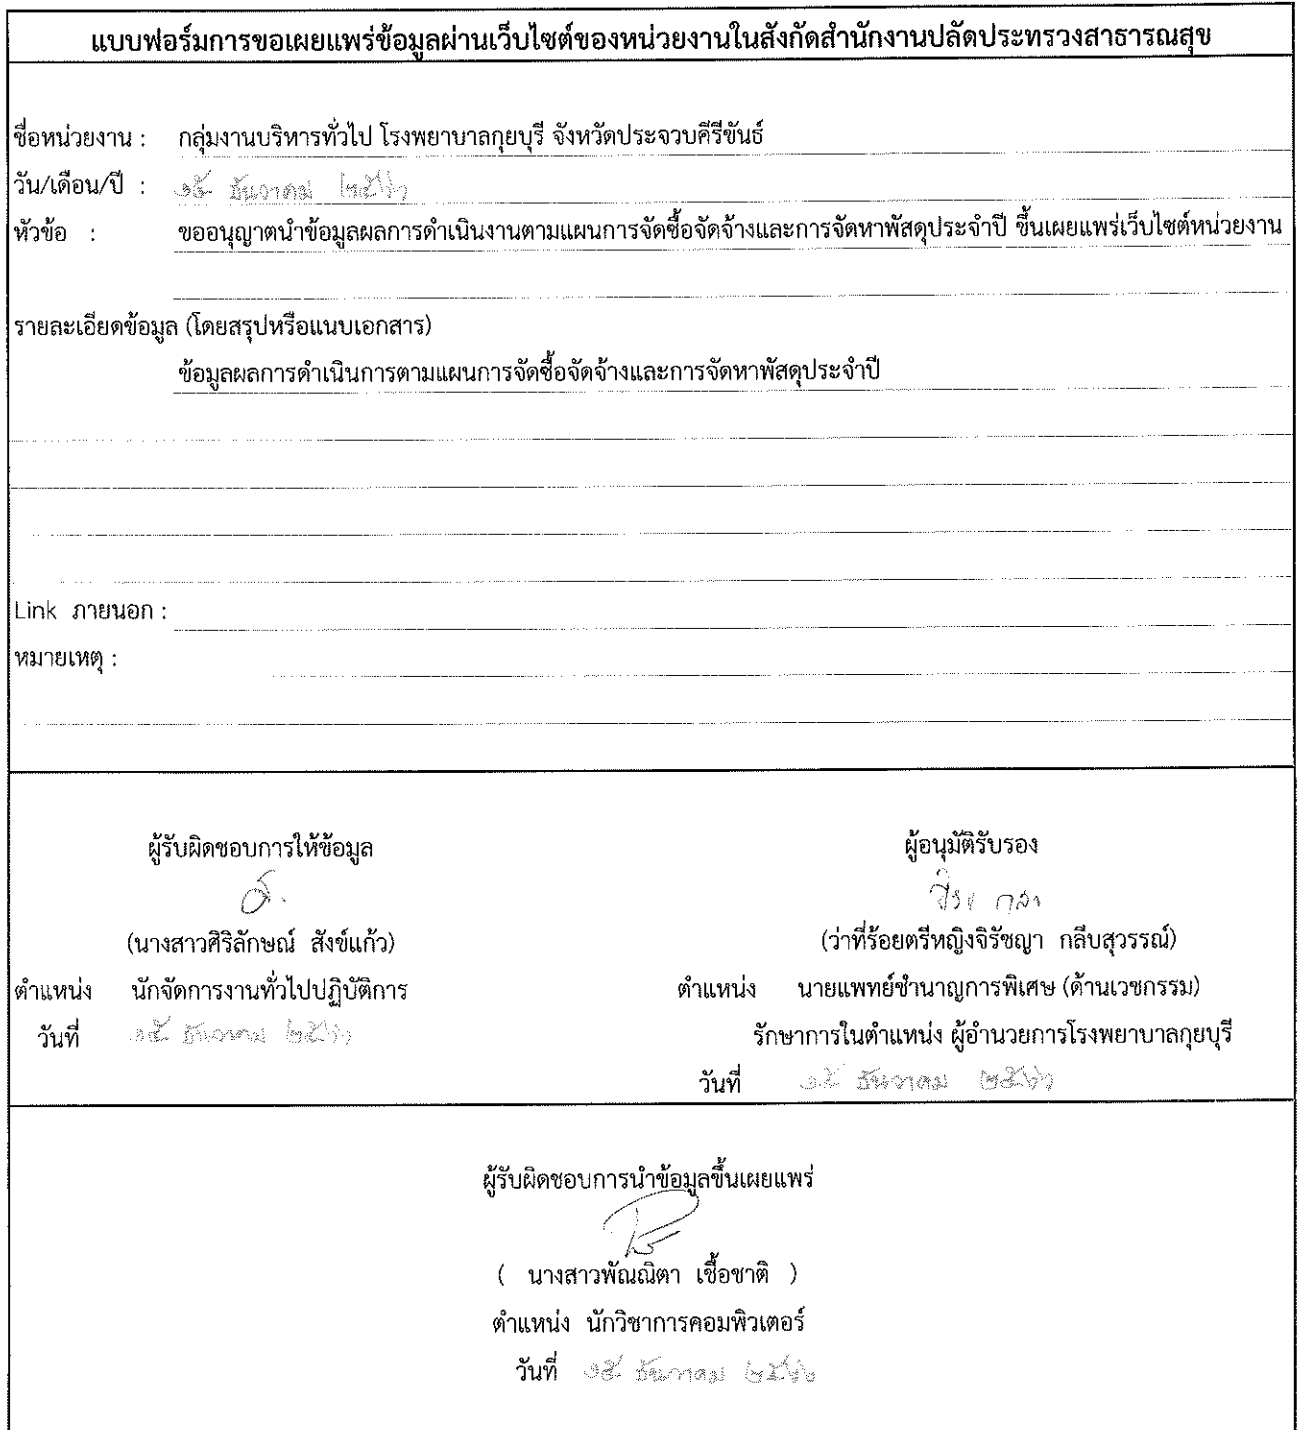 แบบฟอร์มการขอเผยแพร่ข้อมูลผ่านเว็บไซต์ของหน่วยงานในสังกัดสำนักงานปลัดประทรวงสาธารณสุข
ชื่อหน่วยงาน : กลุ่มงานบริหารทั่วไป โรงพยาบาลกุยบุรี จังหวัดประจวบคีรีขันธ์
วัน/เดือน/ปี : ๑๕ ธันวาคม
หัวข้อ : ขออนุญาตนำข้อมูลผลการดำเนินงานตามแผนการจัดซื้อจัดจ้างและการจัดหาพัสดุประจำปี ขึ้นเผยแพร่เว็บไซต์หน่วยงาน
รายละเอียดข้อมูล (โดยสรุปหรือแนบเอกสาร)
ข้อมูลผลการดำเนินการตามแผนการจัดซื้อจัดจ้างและการจัดหาพัสดุประจำปี
Link ภายนอก :
หมายเหตุ :
ผู้รับผิดชอบการให้ข้อมูล
(นางสาวศิริลักษณ์ สังข์แก้ว)
ตำแหน่ง นักจัดการงานทั่วไปปฏิบัติการ
วันที่ ๑๕ ธันวาคม
ผู้อนุมัติรับรอง
(ว่าที่ร้อยตรีหญิงจิรัชญา กลีบสุวรรณ์)
ตำแหน่ง นายแพทย์ชำนาญการพิเศษ (ด้านเวชกรรม)
รักษาการในตำแหน่ง ผู้อำนวยการโรงพยาบาลกุยบุรี
วันที่ ๑๕ ธันวาคม
ผู้รับผิดชอบการนำข้อมูลขึ้นเผยแพร่
( นางสาวพัณณิตา เชื้อชาติ )
ตำแหน่ง นักวิชาการคอมพิวเตอร์
วันที่ ๑๕ ธันวาคม